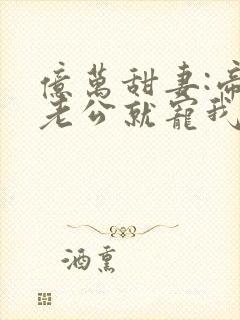 億萬甜妻:帝
老公就寵我
酒熏